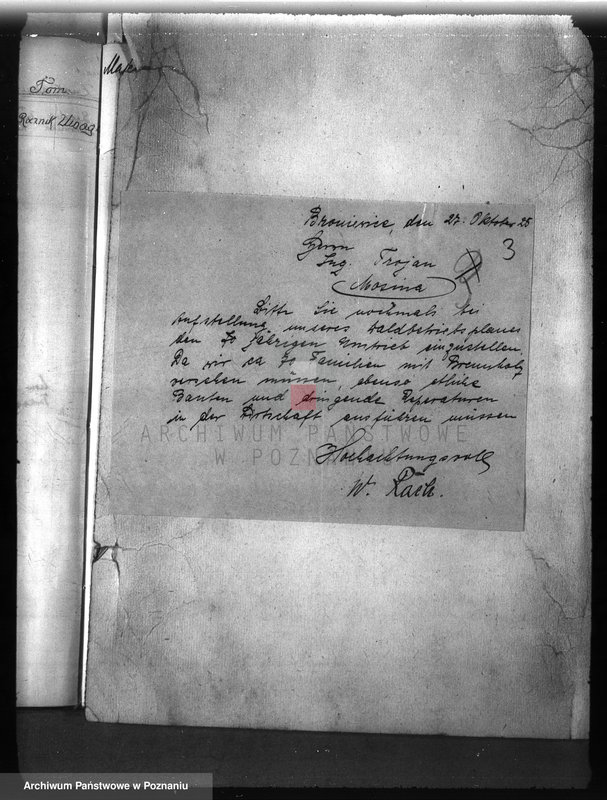 Tom
Rocznik Uwag
Broniewice, den 27. Oktober 25
3
Herrn
Ing. Trojan
Mosina
Bitte Sie nochmals bei
Aufstellung unseres Waldbetriebsplanes
den 70 jährigen Umtrieb einzustellen.
Da wir ca 70 Familien mit Brennholz
versehen müssen, ebenso etliche
Bauten und dringende Reperaturen
in der Wirtschaft ausführen müssen
Hochachtungsvoll
W. Rath.
ARCHIWUM PAŃSTWOWE
W POZNANIU
Archiwum Państwowe w Poznaniu